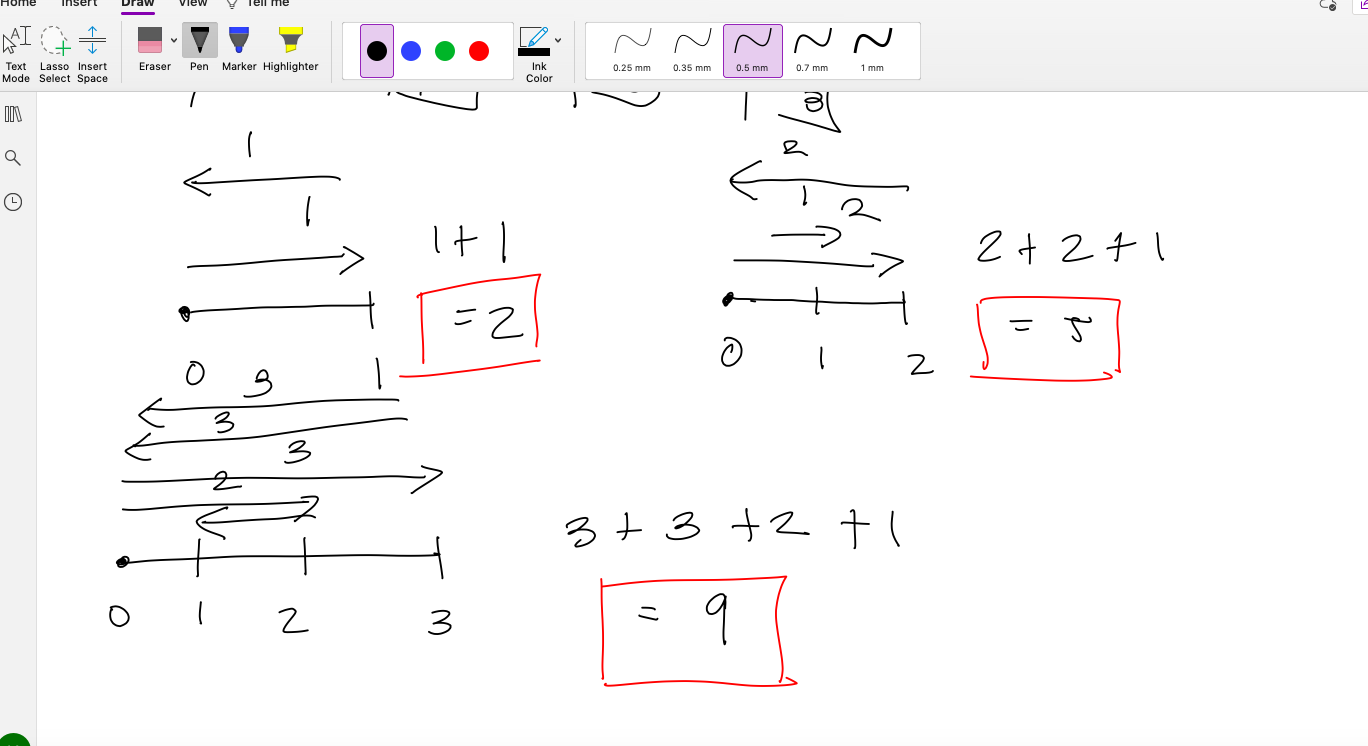 Home Insert Draw View Tell me
Text Mode Lasso Select Insert Space Eraser Pen Marker Highlighter Ink Color 0.25 mm 0.35 mm 0.5 mm 0.7 mm 1 mm
1
1
1 + 1
= 2
0 1
2
1 2
2 + 2 + 1
= 5
0 1 2
3
3
3
2
3 + 3 + 2 + 1
= 9
0 1 2 3